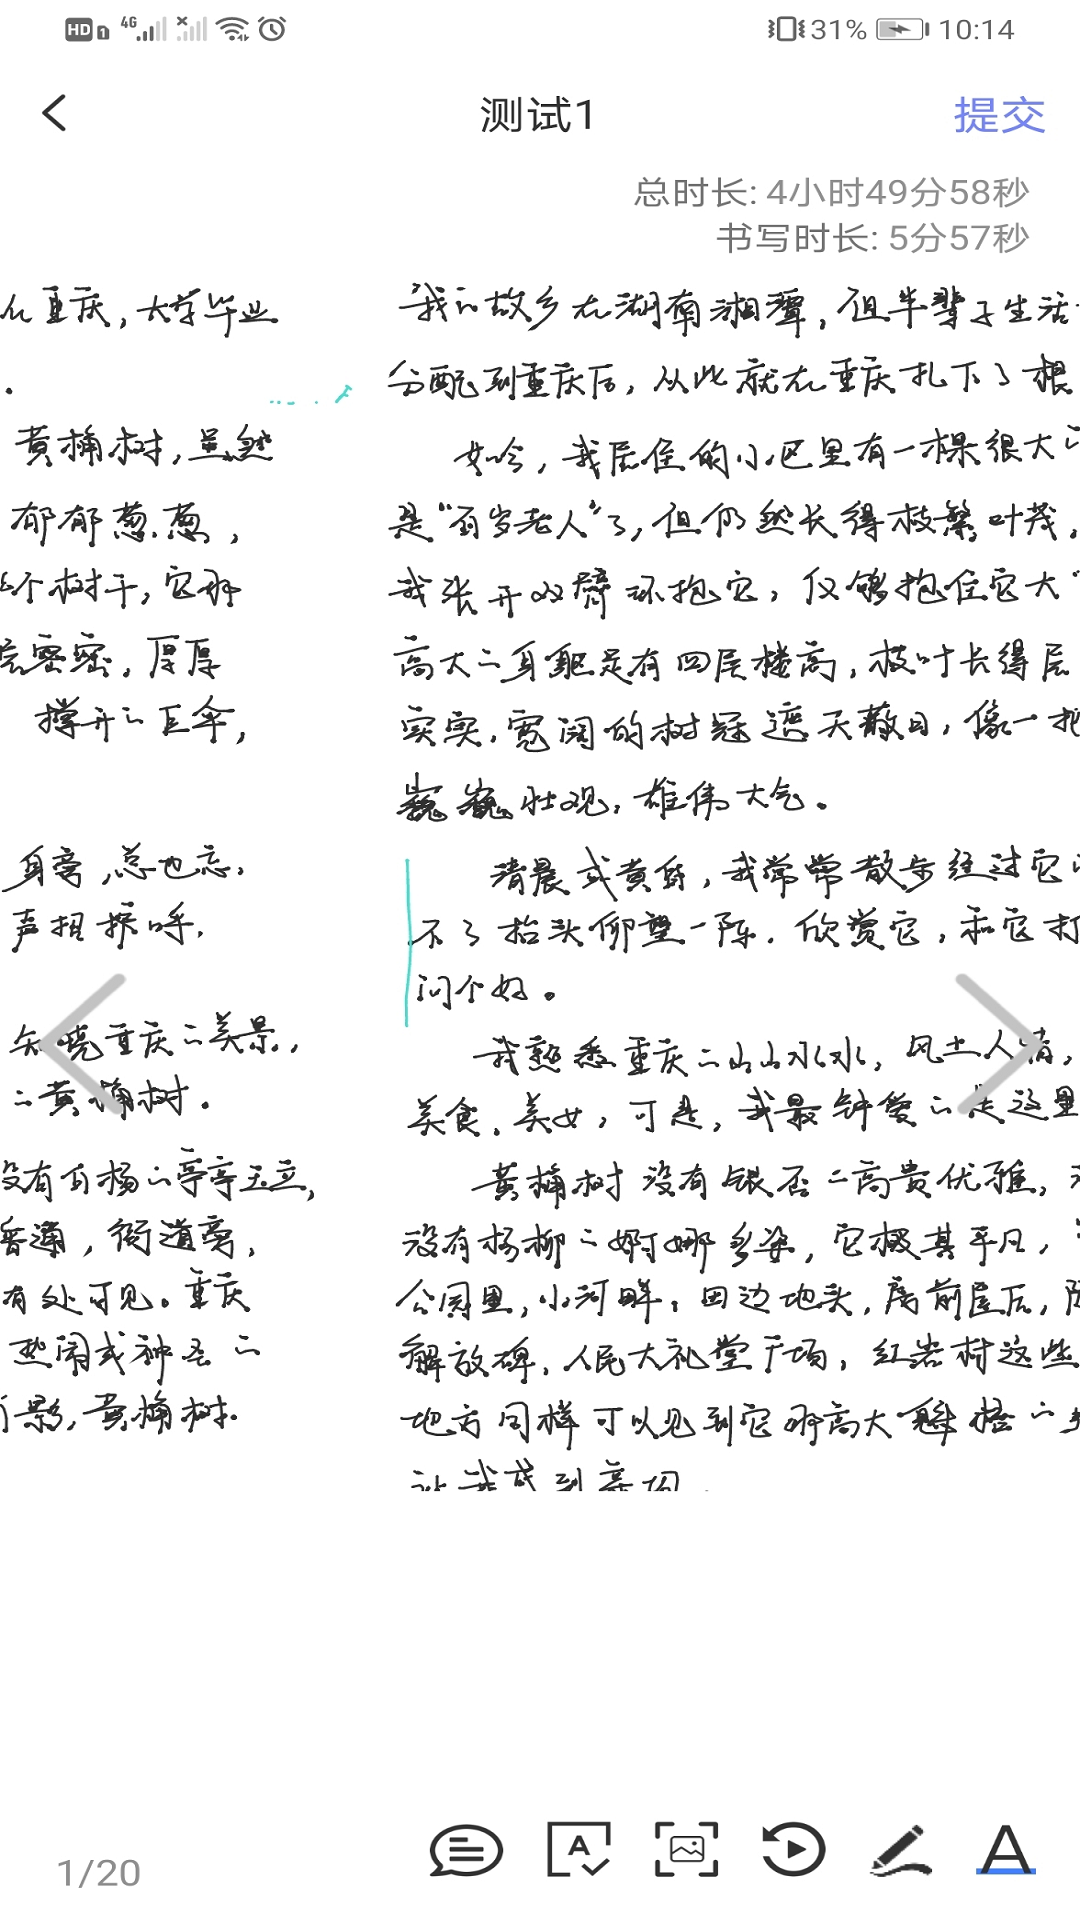 HD 1 4G 31% 10:14
测试1
提交
总时长: 4小时49分58秒
书写时长: 5分57秒
在重庆,大学毕业
。
黄桷树,虽然
郁郁葱葱,
个树干,它那
密密,厚厚
撑开的巨伞,
身旁,总也忘,
声招呼,
知晓重庆的美景,
的黄桷树。
没有白杨的亭亭玉立,
普通,街道旁,
有处可见。重庆
热闹或神圣的
影,黄桷树.
我的故乡在湖南湘潭,但半辈子生活
分配到重庆后,从此就在重庆扎下了根
如今,我居住的小区里有一棵很大的
是“百岁老人”了,但仍然长得枝繁叶茂,
我张开双臂环抱它,仅够抱住它大
高大的身躯足有四层楼高,枝叶长得层
实实,宽阔的树冠遮天蔽日,像一把
巍巍壮观,雄伟大气。
清晨或黄昏,我常常散步经过它的
不了抬头仰望一阵.欣赏它,和它打
问个好。
我熟悉重庆的山山水水,风土人情,
美食,美女,可是,我最钟爱的是这里
黄桷树没有银杏的高贵优雅,
没有杨柳的婀娜多姿,它极其平凡,
公园里,小河畔,田边地头,房前屋后,随
解放碑,人民大礼堂广场,红岩村这些
地方同样可以见到它那高大魁梧的
让我感到亲切
1/20
A
A